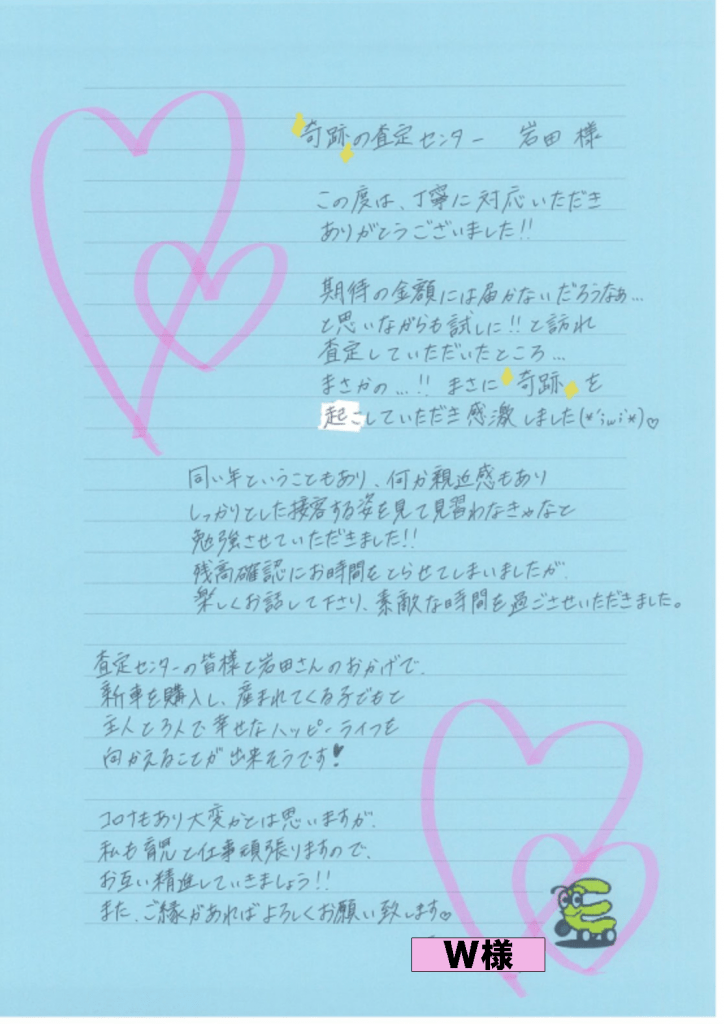 奇跡の査定センター 岩田 様
この度は、丁寧に対応いただき
ありがとうございました!!
期待の金額には届かないだろうなぁ…
と思いながらも試しに!!と訪れ
査定していただいたところ…
まさかの…!! まさに奇跡を
起こしていただき感激しました(*´iωi`*)♡
同い年ということもあり、何か親近感もあり
しっかりとした接客する姿を見て見習わなきゃなと
勉強させていただきました!!
残高確認にお時間をとらせてしまいましたが、
楽しくお話して下さり、素敵な時間を過ごさせいただきました。
査定センターの皆様と岩田さんのおかげで、
新車を購入し、産まれてくる子どもと
主人と3人で幸せなハッピーライフを
向かえることが出来そうです♥
コロナもあり大変かとは思いますが、
私も育児と仕事頑張りますので、
お互い精進していきましょう!!
また、ご縁があればよろしくお願い致します♡
W様